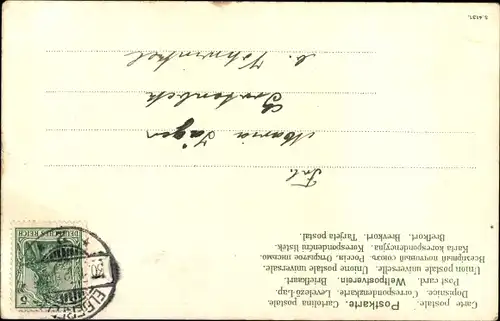 Carte postale. Postkarte. Cartolina postale.
Dopisnice. Correspondenzkarte. Levelező-Lap.
Post card. Weltpostverein. Briefkaart.
Union postale universelle. Unione postale universale.
Всемірный почтовый союзъ. Россія. Открытое письмо.
Karta korespondencyjna. Korespondenční lístek.
Brefkort. Brevkort. Tarjeta postal.
5
DEUTSCHES REICH
ELBERF
Frl.
Maria Jäger
b. Vohwinkel
4137.